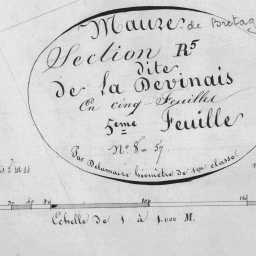 Maure de Bretag
Section R5
dite
de la Devinais
En cinq Feuilles
5eme Feuille
Nos 8 - 57
Par Delamaire Géomètre de 1ère classe
Echelle de 1 à 1.000 M.